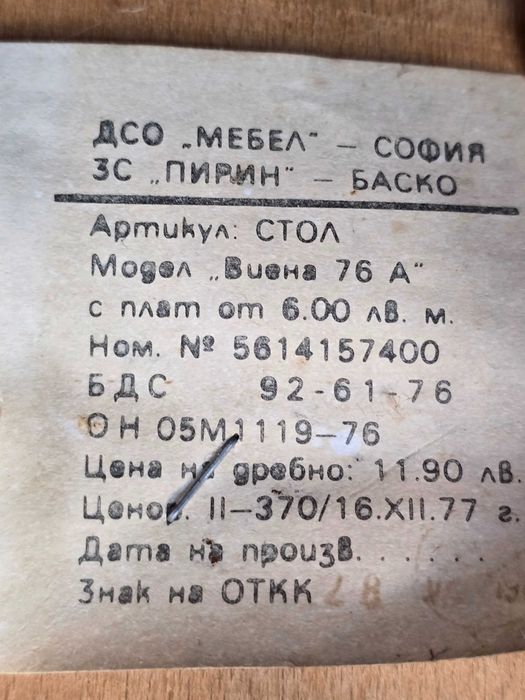 ДСО „МЕБЕЛ" – СОФИЯ
ЗС „ПИРИН" – БАСКО
Артикул: СТОЛ
Модел „Виена 76 А"
с плат от 6.00 лв. м.
Ном. № 5614157400
БДС 92-61-76
ОН 05М1119–76
Цена на дребно: 11.90 лв.
II–370/16.XII.77 г.
Дата на произв. . . . . .
Знак на ОТКК